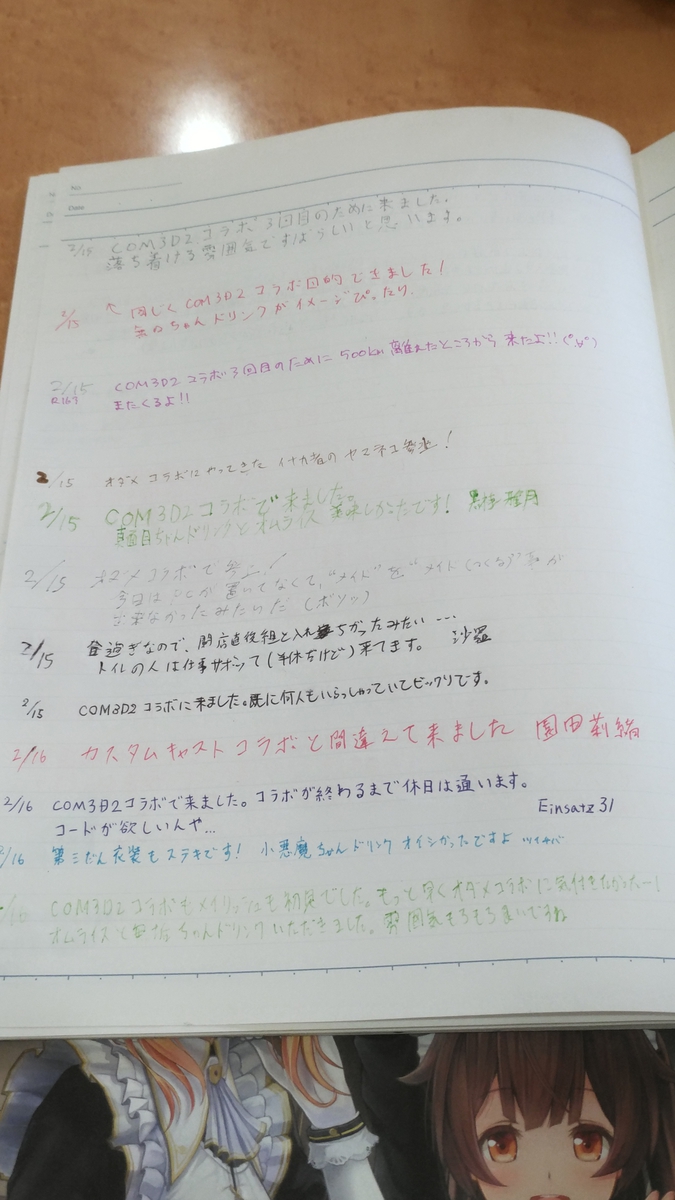 No.
Date
2/15 COM3D2 コラボ 3回目のために来ました。
落ち着ける雰囲気ですばらしいと思います。
2/15 ↖ 同じく COM3D2 コラボ目的できました!
無口ちゃんドリンクがイメージぴったり。
2/15 COM3D2 コラボ3回目のために 500km 離れたところから 来たよ!!
またくるよ!!
2/15 オダメ コラボにやってきた イナカ者の ヤマネコ参上!
2/15 COM3D2 コラボで来ました。
真面目ちゃんドリンクとオムライス 美味しかったです!
2/15 オダメコラボで参上!
今日は PCが置いてなくて、"メイド"を"メイド(つくる)"事が
出来なかったみたいだ (ボソッ)
2/15 昼過ぎなので、開店直後組と入れ違ちがったみたい…
トイレの人は仕事サボって(半休だけど)来てます。 沙羅
2/15 COM3D2 コラボに来ました。既に何人もいらっしゃっていてビックリです。
2/16 カスタムキャストコラボと間違えて来ました 園田莉緒
2/16 COM3D2コラボで来ました。コラボが終わるまで休日は通います。
コードが欲しいんや… Einsatz 31
2/16 第三だん衣装もステキです! 小悪魔ちゃんドリンク オイシかったですよ
2/16 COM3D2コラボもメイリッシュも初見でした。もっと早くオダメコラボに気付きたかったー!
オムライスと無口ちゃんドリンクいただきました。雰囲気もろもろ良いですね